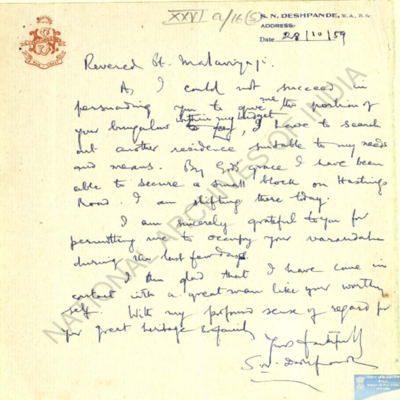 XXVI a/16(5)
S. N. DESHPANDE, M.A., B.Sc.
ADDRESS
Date 28/10/59
Revered St. Malaviyaji.
As, I could not succeed in
persuading you to give me the portion of
your bungalow within my budget, I have to search
out another residence suitable to my needs
and means. By God's grace I have been
able to secure a small block on Hastings
Road. I am shifting there today.
I am sincerely grateful to you for
permitting me to occupy your varandah
during the last four days.
I am glad that I have come in
contact with a great man like your worthy
self. With my profound sense of regard for
your great heritage & family
Yours faithfully
S. N. Deshpande
NATIONAL ARCHIVES OF INDIA